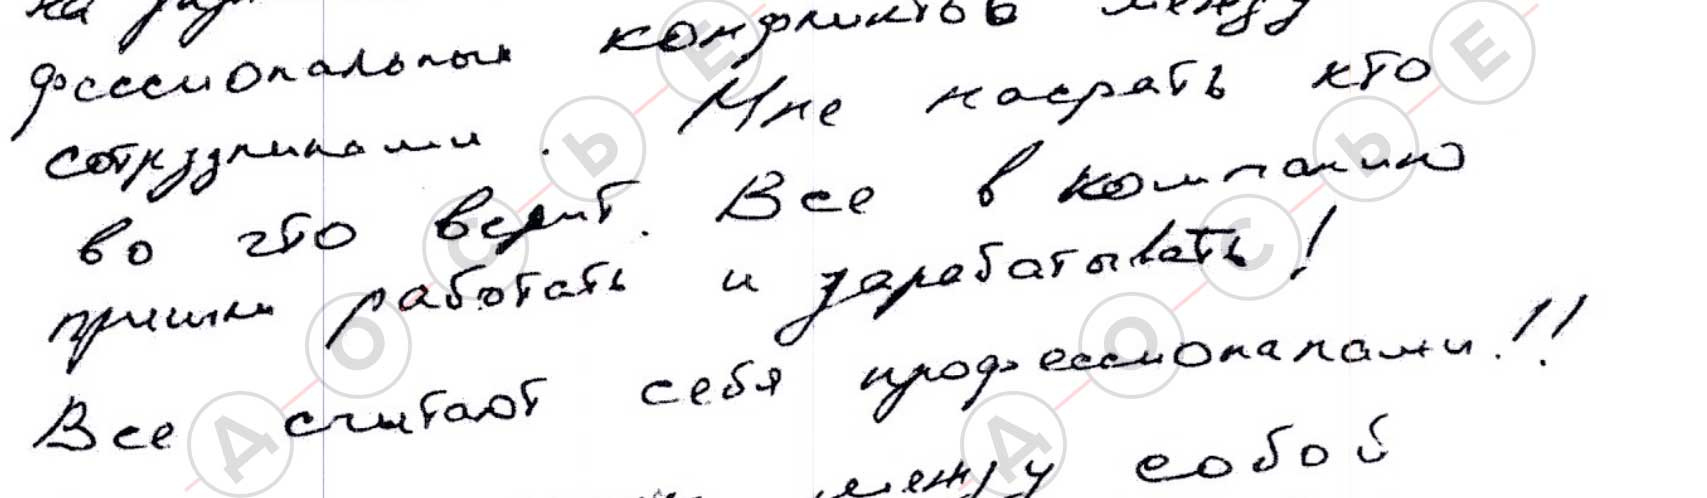 на
фессиональных конфликтов между
сотрудниками. Мне насрать кто
во что верит. Все в компанию
пришли работать и зарабатывать!
Все считают себя профессионалами!!
между собой
ДОСЬЕ
ДОСЬЕ